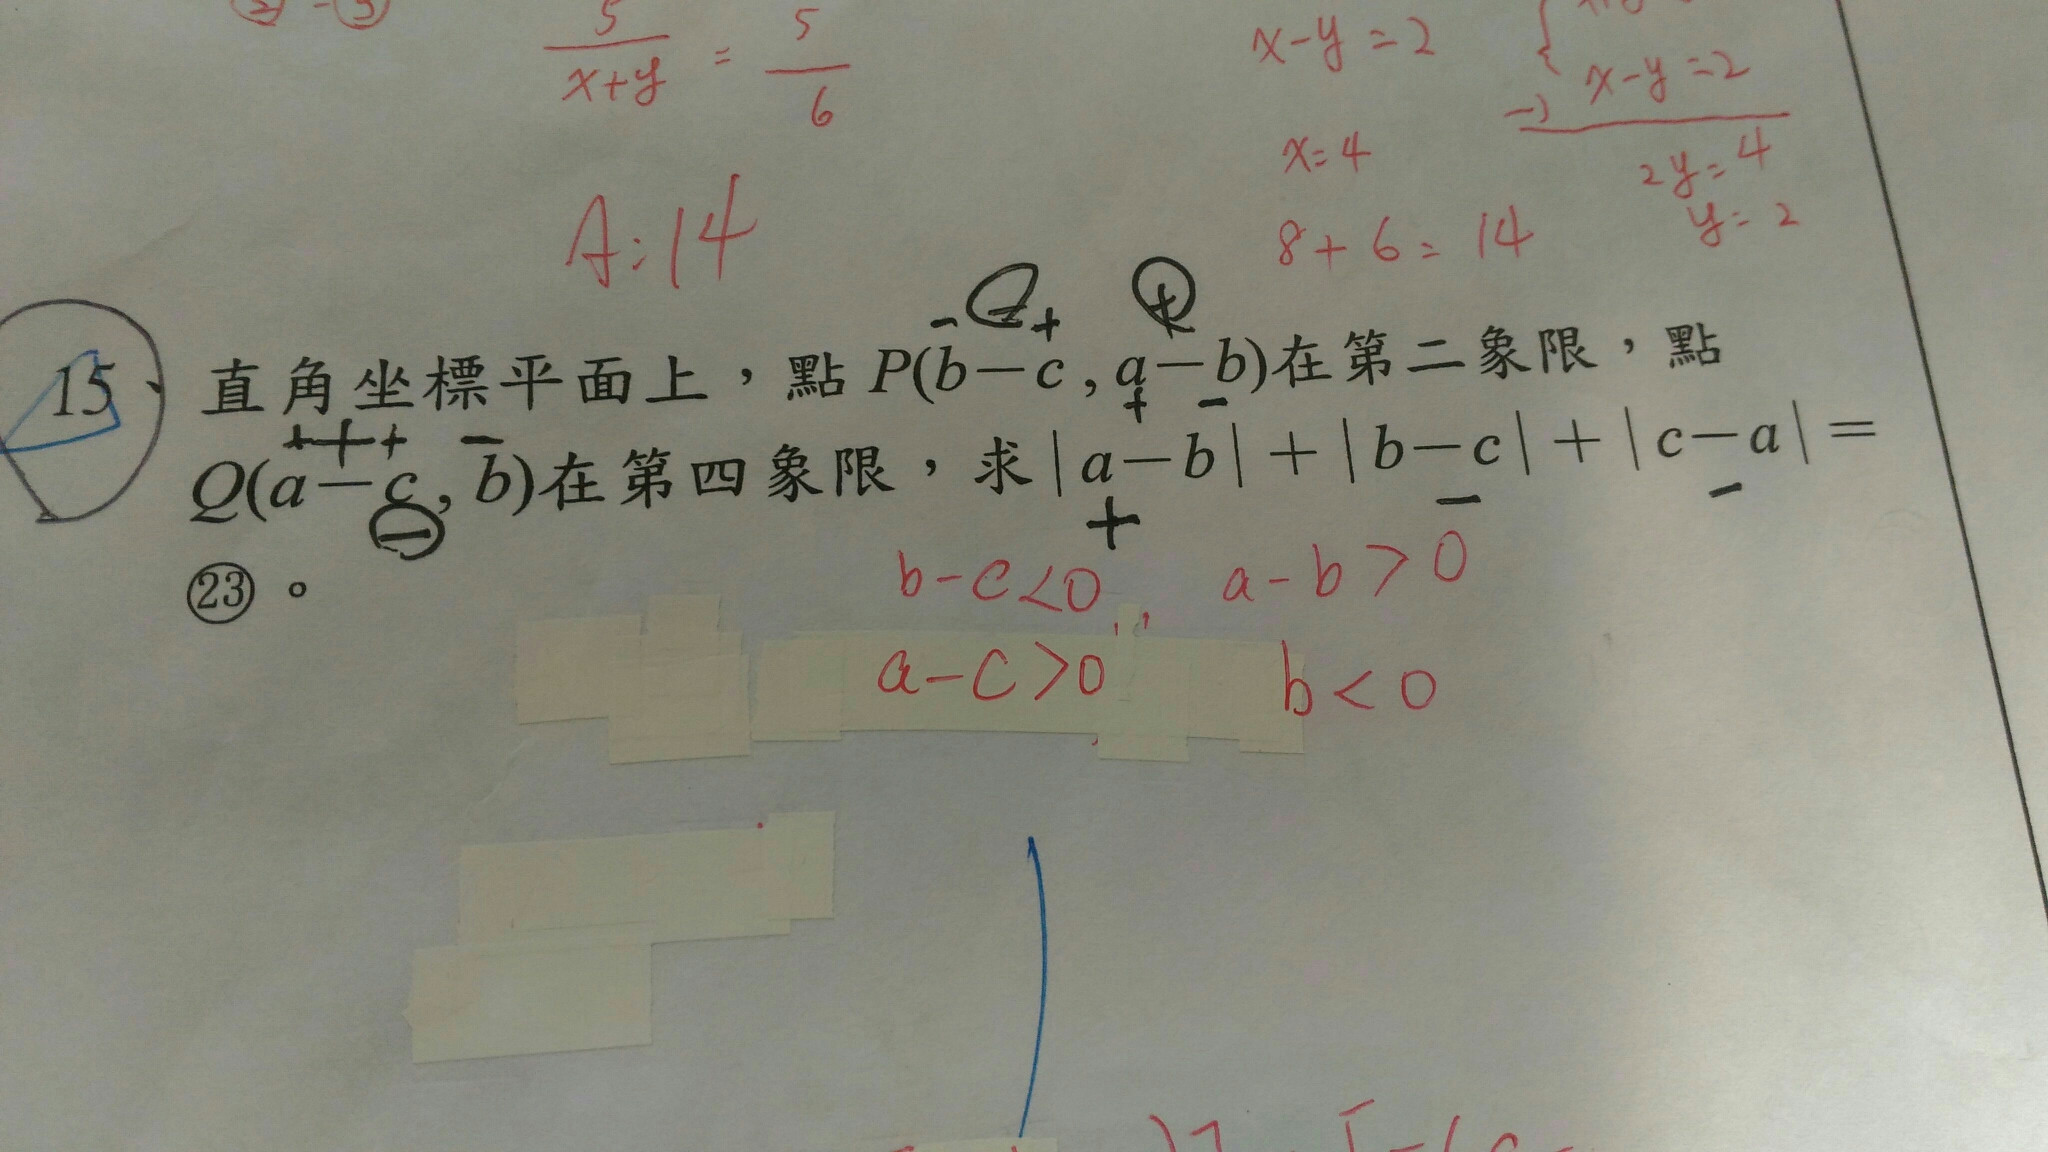 5 5
x+y = 6
x-y=2
x-y=2
x=4
2y=4
y=2
A:14
8+6=14
15
直角坐標平面上，點P(b-c,a-b)在第二象限，點
Q(a-c,b)在第四象限，求|a-b|+|b-c|+|c-a|=
㉓。
b-c<0, a-b>0
a-c>0 b<0